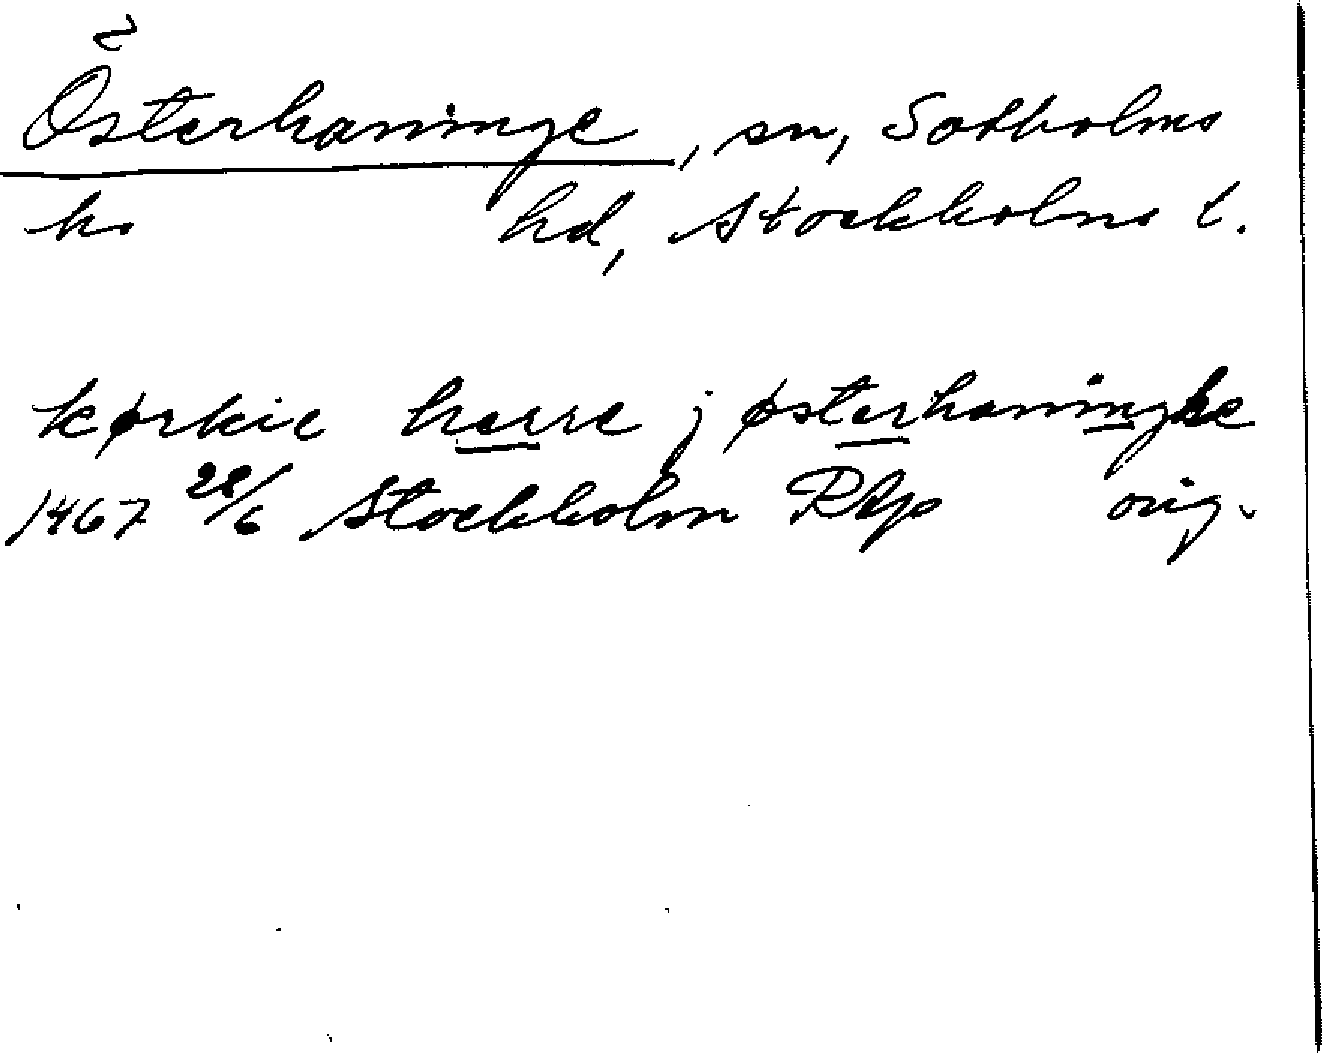 Österhaninge, sn, Sotholms
ko hd, Stockholms l.
kørkie herre j østerhaninghe
1467 28/6 Stockholm RAp orig.